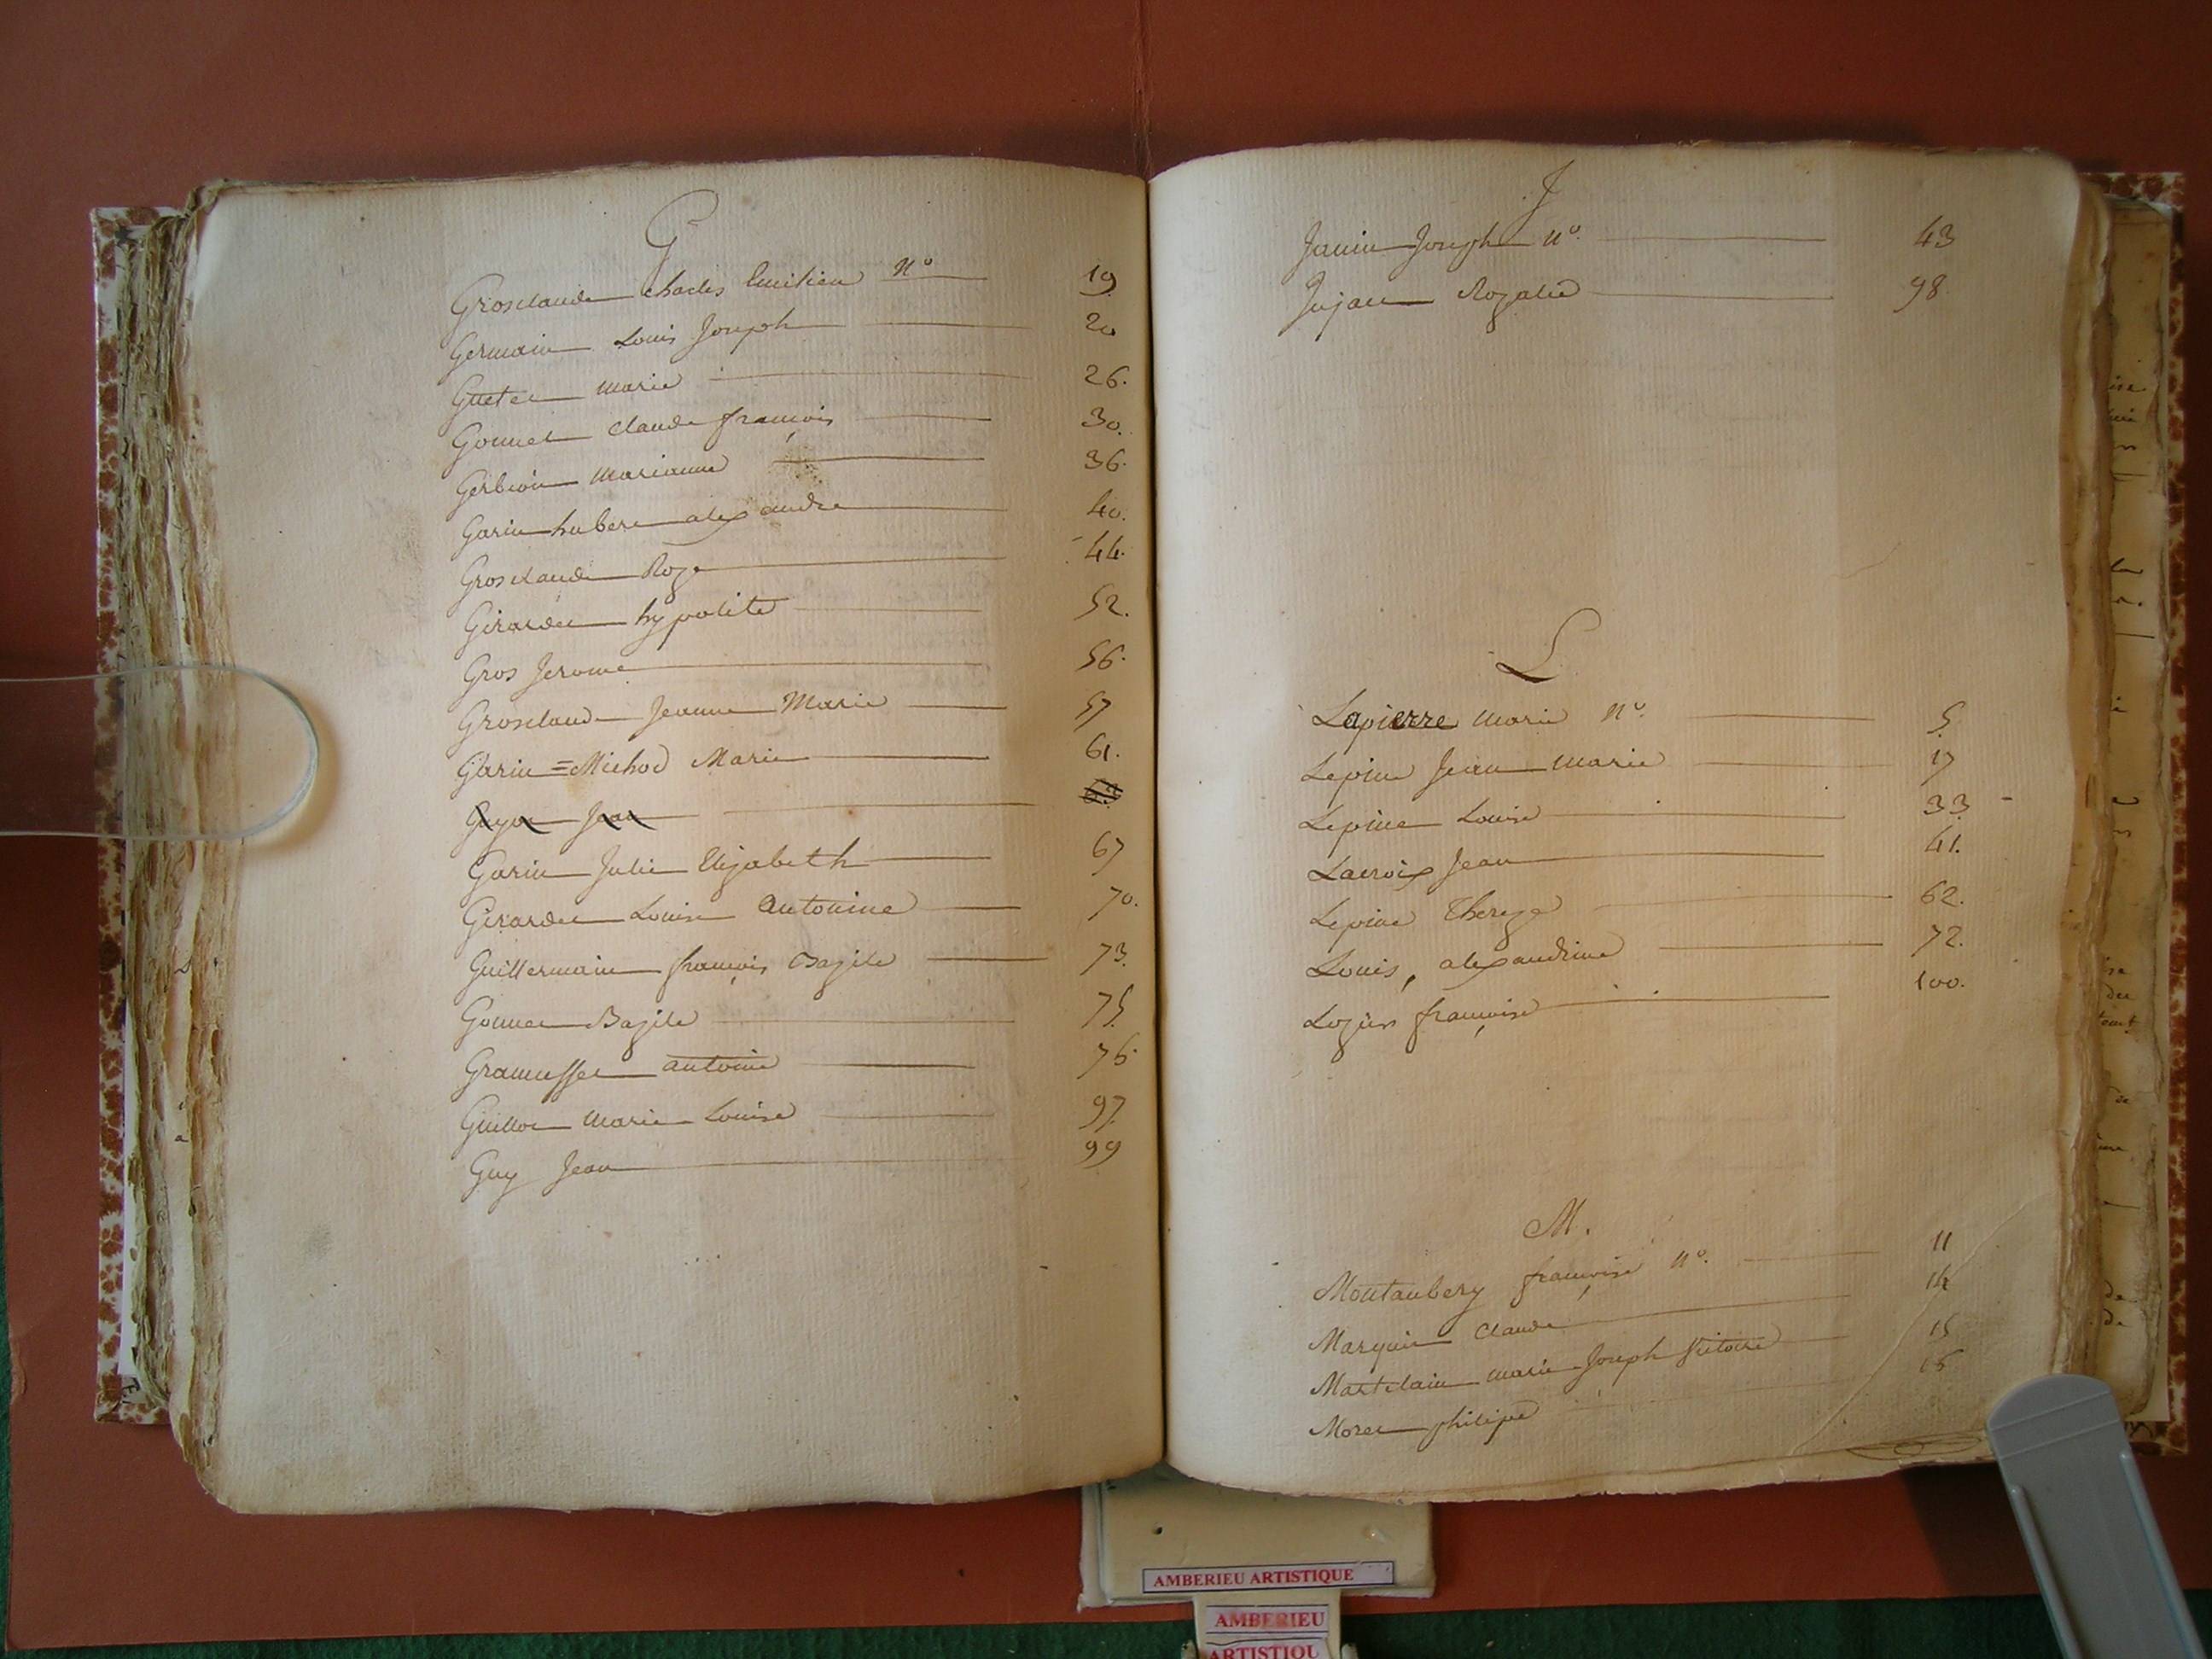 G
Grosclaude Charles Emilien N° 19.
Germain Louis Joseph 20
Guetet marie 26.
Gonnet Claude françois 30.
Gerbion marianne 36.
Garin hubert alexandre 40.
Grosclaude Roze 44.
Girardet hypolite 52.
Gros Jerome 56.
Grosclaude Jeanne Marie 57
Garin = Michod Marie 61.
Guyot Jean
Garin Julie Elizabeth 67
Girardet Louise antonine 70.
Guillermain françois Bazile 73.
Gonnet Bazile 75.
Gramusset antoine 76.
Guillot marie Louise 97.
Guy Jean 99
J
Janin Joseph N° 43
Jujat Rozalie 98.
L
Lapierre marie N° 5
Lepine Jean marie 17
Lepine Louise 33
Lacroix Jean 41.
Lepine Thereze 62.
Louis, alexandrine 72.
Lozier françoise 100.
M.
Montanbery françoise N° 11
Marquis Claude 14
Martelain marie Joseph Victoire 15
Moret philipe 16
AMBERIEU ARTISTIQUE
AMBERIEU